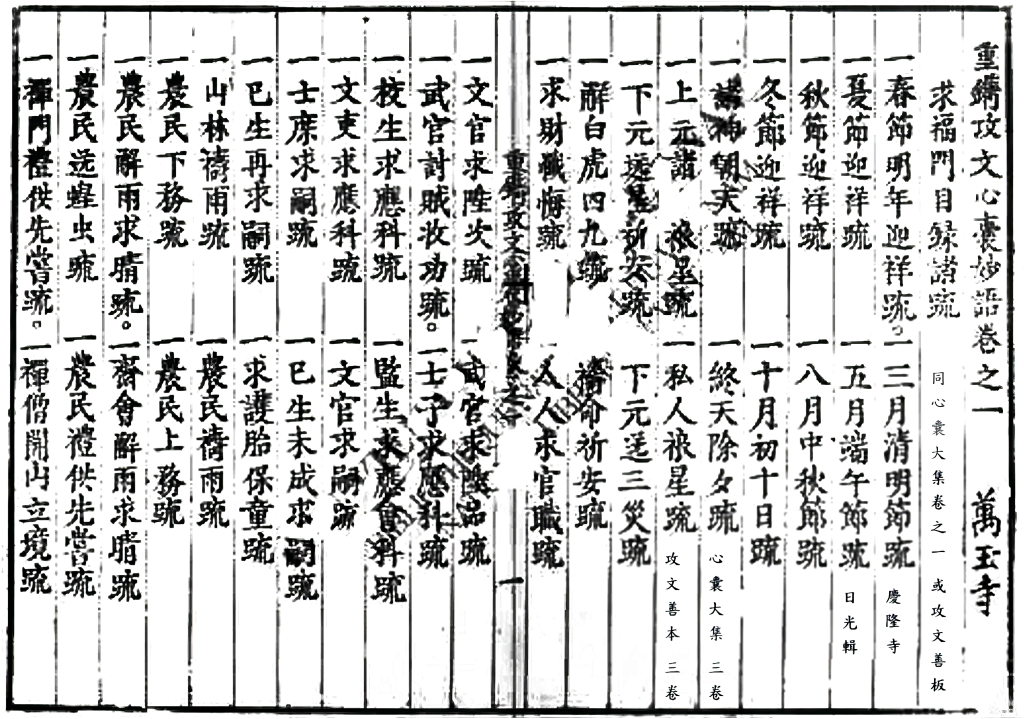 重鐫攻文心囊妙語卷之一 萬玉寺
求福門目錄諸疏 同心囊大集卷之一 或攻文善板
一春節明年迎祥疏。一三月清明節疏 慶隆寺
一夏節迎祥疏 一五月端午節疏 日光輯
一秋節迎祥疏 一八月中秋節疏
一冬節迎祥疏 一十月初十日疏
一諸神朝天疏 一終天除夕疏 心囊大集 三卷
一上元諸 禳星疏 一私人禳星疏 攻文善本 三卷
一下元送星祈安疏 下元送三災疏
一辭白虎四九疏 禱命祈安疏
一求財懺悔疏 一人人求官職疏
重鐫攻文 卷之一 一
一文官求陞次疏 一武官求陞品疏
一武官討賊收功疏。一士子求應科疏
一校生求應科疏 一監生求應會科疏
一文吏求應科疏 一文官求嗣疏
一士庶求嗣疏 一已生未成求嗣疏
一已生再求嗣疏 一求護胎保童疏
一山林禱雨疏 一農民禱雨疏
一農民下務疏 一農民上務疏
一農民解雨求晴疏。一齋會解雨求晴疏
一農民送蝗虫疏 一農民禮供先嘗疏
一禪門禮供先嘗疏。一禪僧開山立境疏